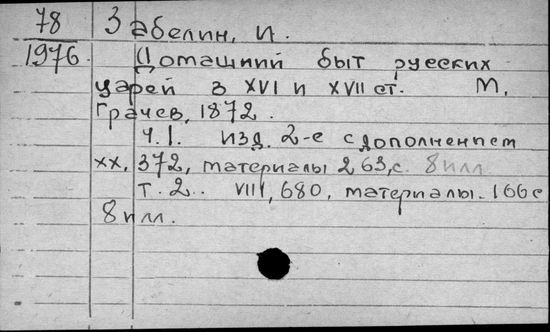 78 Забелин, И.
1976. Домашний быт русских
царей в XVI и XVII ст. М,
Грачев, 1872.
Ч.I. изд. 2-е с дополнением
XX, 372, материалы 263,с. 8 илл
Т. 2.. VIII, 680, материалы. 166 с
8 илл.